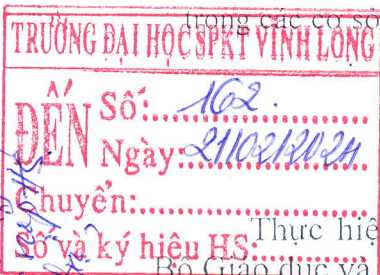 trong các cơ sở
TRƯỜNG ĐẠI HỌC SPKT VĨNH LONG
ĐẾN
Số: 162.
Ngày: 21/02/2024
Chuyển:
Số và ký hiệu HS:
Thực hiệ
Bộ Giáo dục và